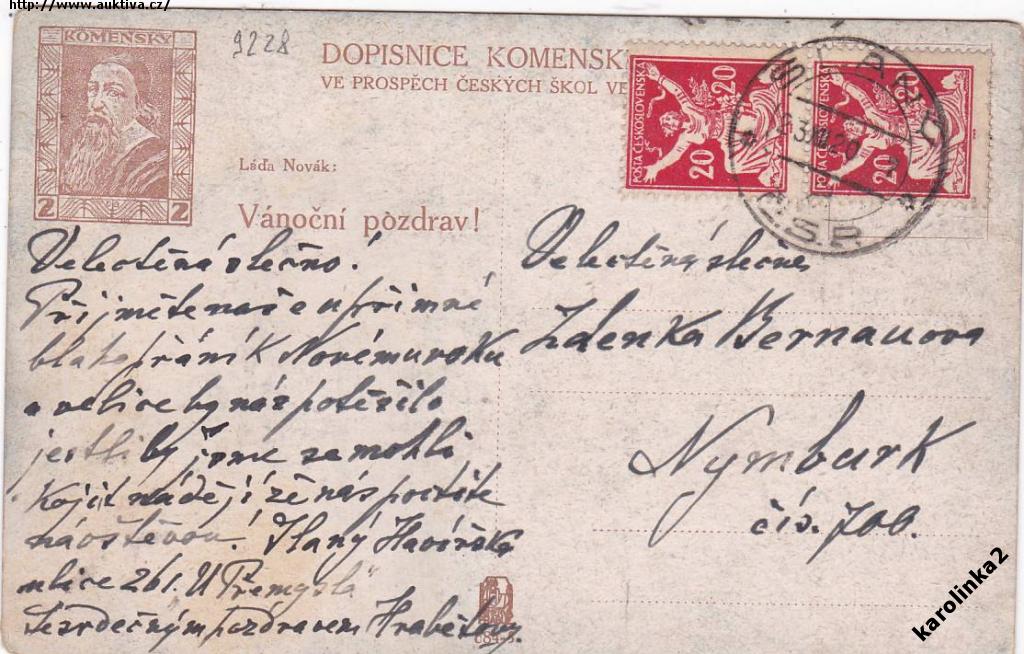 http://www.auktiva.cz/
KOMENSKÝ
2 2
9228
DOPISNICE KOMENSK
VE PROSPĚCH ČESKÝCH ŠKOL VE
POŠTA ČESKOSLOVENSKÁ 20 20
20
SLANÝ
Č.S.R.
Láďa Novák:
Vánoční pozdrav!
Velectěná slečno!
Přijměte naše upřimné
blaho přání k Novému roku
a velice by nás potěšilo
jestli by jsme se mohli
kojit nadějí že nás poctíte
návštěvou! Slaný Havířská
ulice 261. U Přemysla"
Se srdečným pozdravem
Velectěná slečna
Zdenka Bernauova
Nymburk
čís. 700.
karolinka2